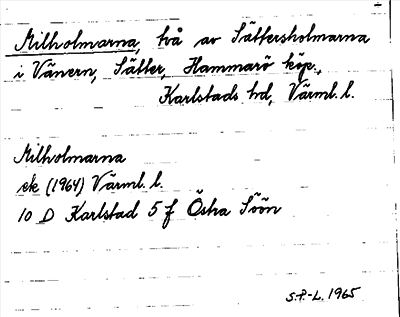 Milholmarna, två av Sättersholmarna
i Vänern, Sätter, Hammarö köp.,
Karlstads hd, Värml. l.
Milholmarna
ek (1964) Värml. l.
10 D Karlstad 5 f Östra Söön
S.P.-L. 1965